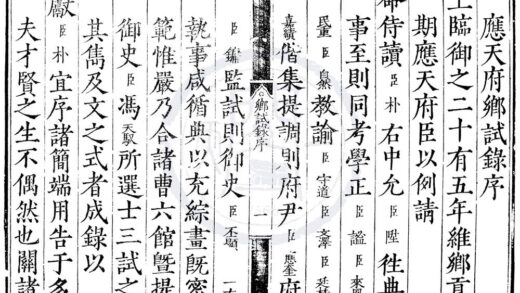 應天府鄉試錄序
上臨御之二十有五年維鄉貢
期應天府臣以例請
侍讀臣朴右中允臣陞徃典
事至則同考學正臣謐臣來
臣自然教諭臣守道臣澤臣廷
嘉績偕集提調則府尹臣應奎府
鄉試錄序
一
臣鏽監試則御史臣丕顯
執事咸循典以充綜畫既密
範惟嚴乃合諸曹六館暨提
御史臣馮天馭所選士三試之
其雋及文之式者成錄以
獻臣朴宜序諸簡端用告于多
夫才賢之生不偶然也關諸